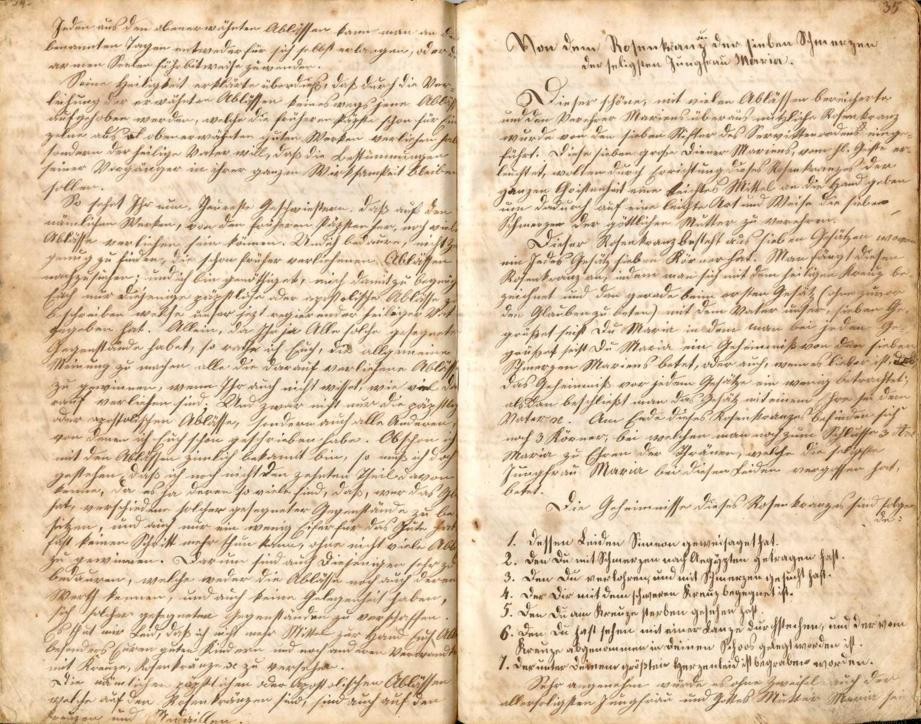 Jeden aus den obenerwähnten Ablässen kann man an de
benannten Tagen entweder für sich selbst erlangen, oder d
armen Seelen fürbittweise zuwenden.
Seine Heiligkeit erklärte überdieß, daß durch die Ver-
leihung der erwähnten Ablässen keineswegs jene Abläß
aufgehoben werden, welche die früheren Päpste schon für Ein
zelne aus obenerwähnten guten Werken verliehen ha
sondern der heilige Vater will, daß die Bestimmungen
seiner Vorgänger in ihrer ganzen Wirksamkeit bleiben
sollen.
So sehet Ihr nun, Geschwistern, daß auf den
nämlichen Werken, von den früheren Päpsten her, noch viele
Ablässe verliehen sein können. Und ich bedaure, nicht
genug zu finden, die schon früher verliehenen Ablässen
nachzusehen; und ich bin genöthiget, mich damit zu begnü
nur diejenige päpstliche oder apostolische Ablässe z
beschreiben welche unser jezt regierender heiliger Vat
gegeben hat. Allein, da Ihr ja Alle solche gesegnete
Gegenstände habet, so rathe ich Euch, die allgemeine
Meinung zu machen alle die darauf verliehene Abläss
zu gewinnen, wenn Ihr auch nicht wisset, wie viel da
auf verliehen sind. Und zwar nicht nur die päpstlic
oder apostolischen Ablässe, sondern auch alle Anderen
von denen ich Euch schon geschrieben habe. Obschon ich
mit den Ablässen ziemlich bekannt bin, so muß ich doch
gestehen, daß ich noch nicht den zehnten Theil davon
kenne, da es ja deren so viele sind, daß, wer das Gl
hat, verschiedene solcher gesegneter Gegenstände zu be
sitzen, und auch nur ein wenig Eifer für das Gute hat
fast keinen Schritt mehr thun kann, ohne nicht viele Abl
zu gewinnen. Darum sind auch Diejenigen sehr zu
bedauern, welche weder die Ablässe noch auch deren
Werth kennen, und auch keine Gelegenheit haben,
sich solcher gesegneten Gegenständen zu verschaffen.
Es thut mir Leid, daß ich nicht mehr Mittel zur Hand habe
besonders Euren guten Kindern und noch anderen Verwandt
mit Kreuze, Rosenkränze zu versehen.
Die nämlichen päpstlichen oder Apostolischen Ablässen
welche auf den Rosenkränzen sind, sind auch auf den
Kreuzen und Medaillen.
35
Von dem Rosenkranz der sieben Schmerzen
der seligsten Jungfrau Maria.
Dieser schöne, mit vielen Ablässen bereicherte
und den Verehrer Mariens überaus nützliche Rosenkranz
wurde von den sieben Stifter des Servitenordens einge-
führt. Diese sieben große Diener Mariens, vom hl. Geiste er
leuchtet, wollten durch Errichtung dieses Rosenkranzes der
ganzen Christenheit ein leichtes Mittel an die Hand geben
um dadurch auf eine leichte Art und Weise die sieben
Schmerzen der göttlichen Mutter zu verehren.
Dieser Rosenkranz besteht aus sieben Gesätzen wovon
ein jedes Gesätz sieben Körner hat. Man fängt diesen
Rosenkranz an, indem man sich mit dem heiligen Kreuz be
zeichnet und dan gerade beim ersten Gesätz (ohne zuvor
den Glauben zu beten) mit dem Vater unser, sieben Ge-
grüßet seist Du Maria in dem man bei jeden Ge-
grüßet seist Du Maria ein Geheimniß von den sieben
Schmerzen Mariens betet, oder auch, wenn es lieber ist
das Geheimniß vor jedem Gesätze ein wenig betrachtet,
alsdan beschließt man das Gesätz mit einem Ehre sei dem
Vater etc. Am Ende dieses Rosenkranzes befinden sich
noch 3 Körner, bei welchen man noch zum Schlusse 3 Ave
Maria zu Ehren der Thränen, welche die seligste
Jungfrau Maria bei diesen Leiden vergossen hat,
betet.
Die Geheimnisse dieses Rosenkranzes sind folgen
de:
1. Dessen Leiden Simeon geweissaget hat.
2. Den Du mit Schmerzen nach Aegypten getragen hast.
3. Den Du verlohren, und mit Schmerzen gesucht hast.
4. Der Dir mit dem schweren Kreuz begegnet ist.
5. Den Du am Kreuze sterben gesehen hast.
6. Den Du hast sehen mit einer Lanze durchstechen, und der vom
Kreuze abgenommen in Deinen Schoos gelegt worden ist.
7. Der unter Deinem größten Herzenleid ist begraben worden.
Sehr angenehm würde es ohne Zweifel auch der
allerseligsten Jungfrau und Gottes Mutter Maria sein